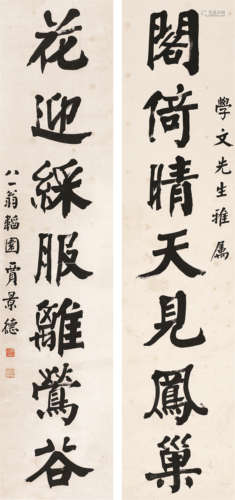 閣倚晴天見鳳巢
學文先生雅屬
花迎綵服離鶯谷
八一翁韜園賈景德